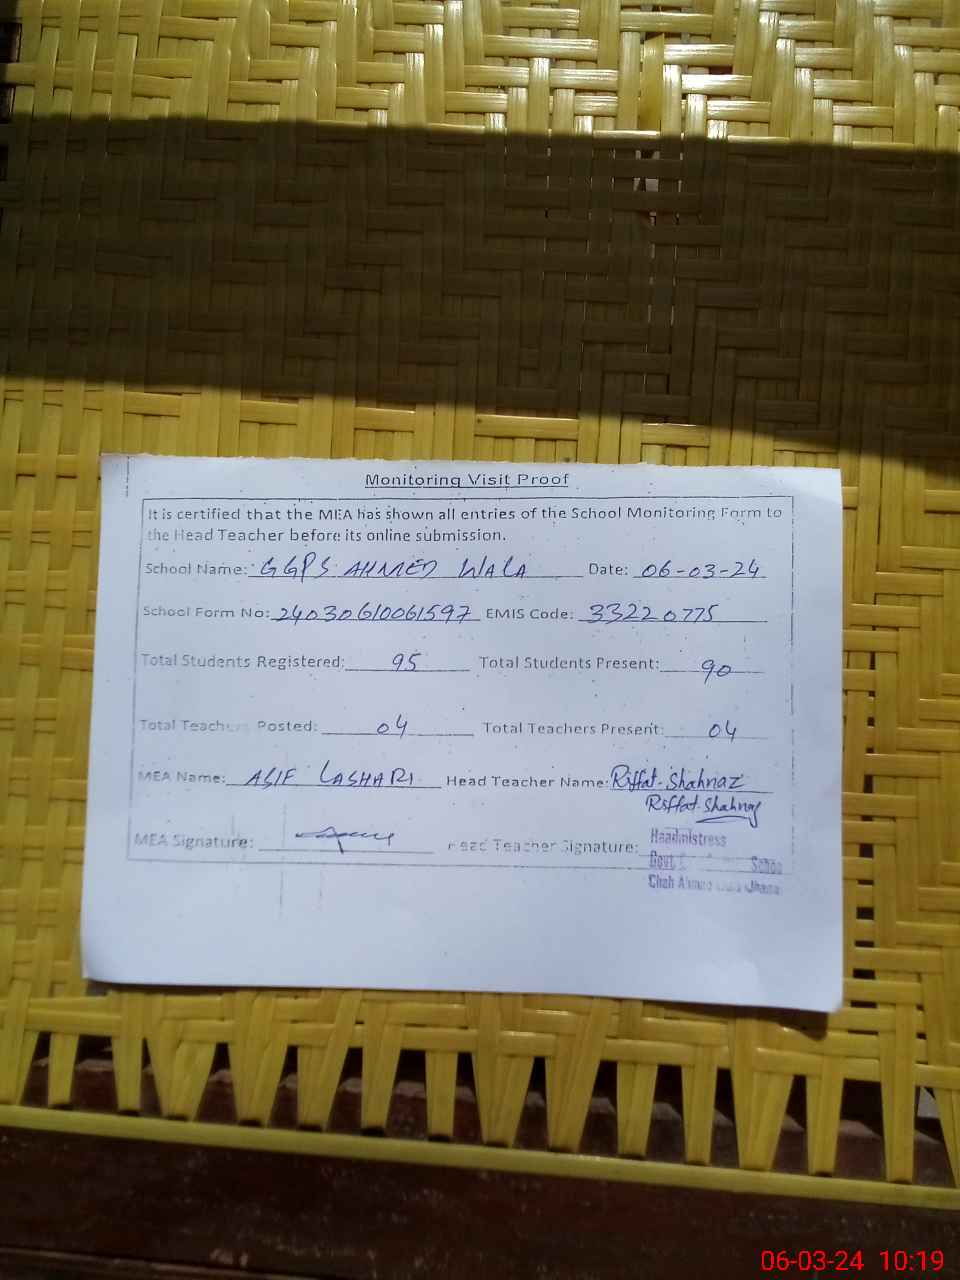 Monitoring Visit Proof
It is certified that the MEA has shown all entries of the School Monitoring Form to
the Head Teacher before its online submission.
School Name: GGPS AHMED WALA Date: 06-03-24
School Form No: 24030610061597 EMIS Code: 33220775
Total Students Registered: 95 Total Students Present: 90
Total Teachers Posted: 04 Total Teachers Present: 04
MEA Name: ASIF LASHARI Head Teacher Name: Riffat Shahnaz
Riffat Shahnaz
MEA Signature: Head Teacher Signature:
Headmistress
Govt. School
Chah Ahmed
06-03-24 10:19